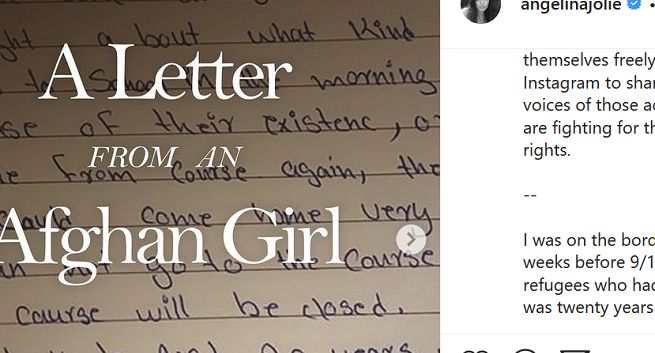 A Letter
FROM AN
Afghan Girl
a bout what kind
to School in the morning
of their existenc,
from Course again, the
come home very
not go to the Course
Course will be closed.
angelinajolie
themselves freely
Instagram to shar
voices of those ac
are fighting for th
rights.
--
I was on the bord
weeks before 9/1
refugees who had
was twenty years